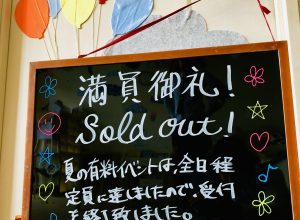 満員御礼!
Sold out!
夏の有料イベントは、全日程
定員に達しましたので、受付
を終了致しました。